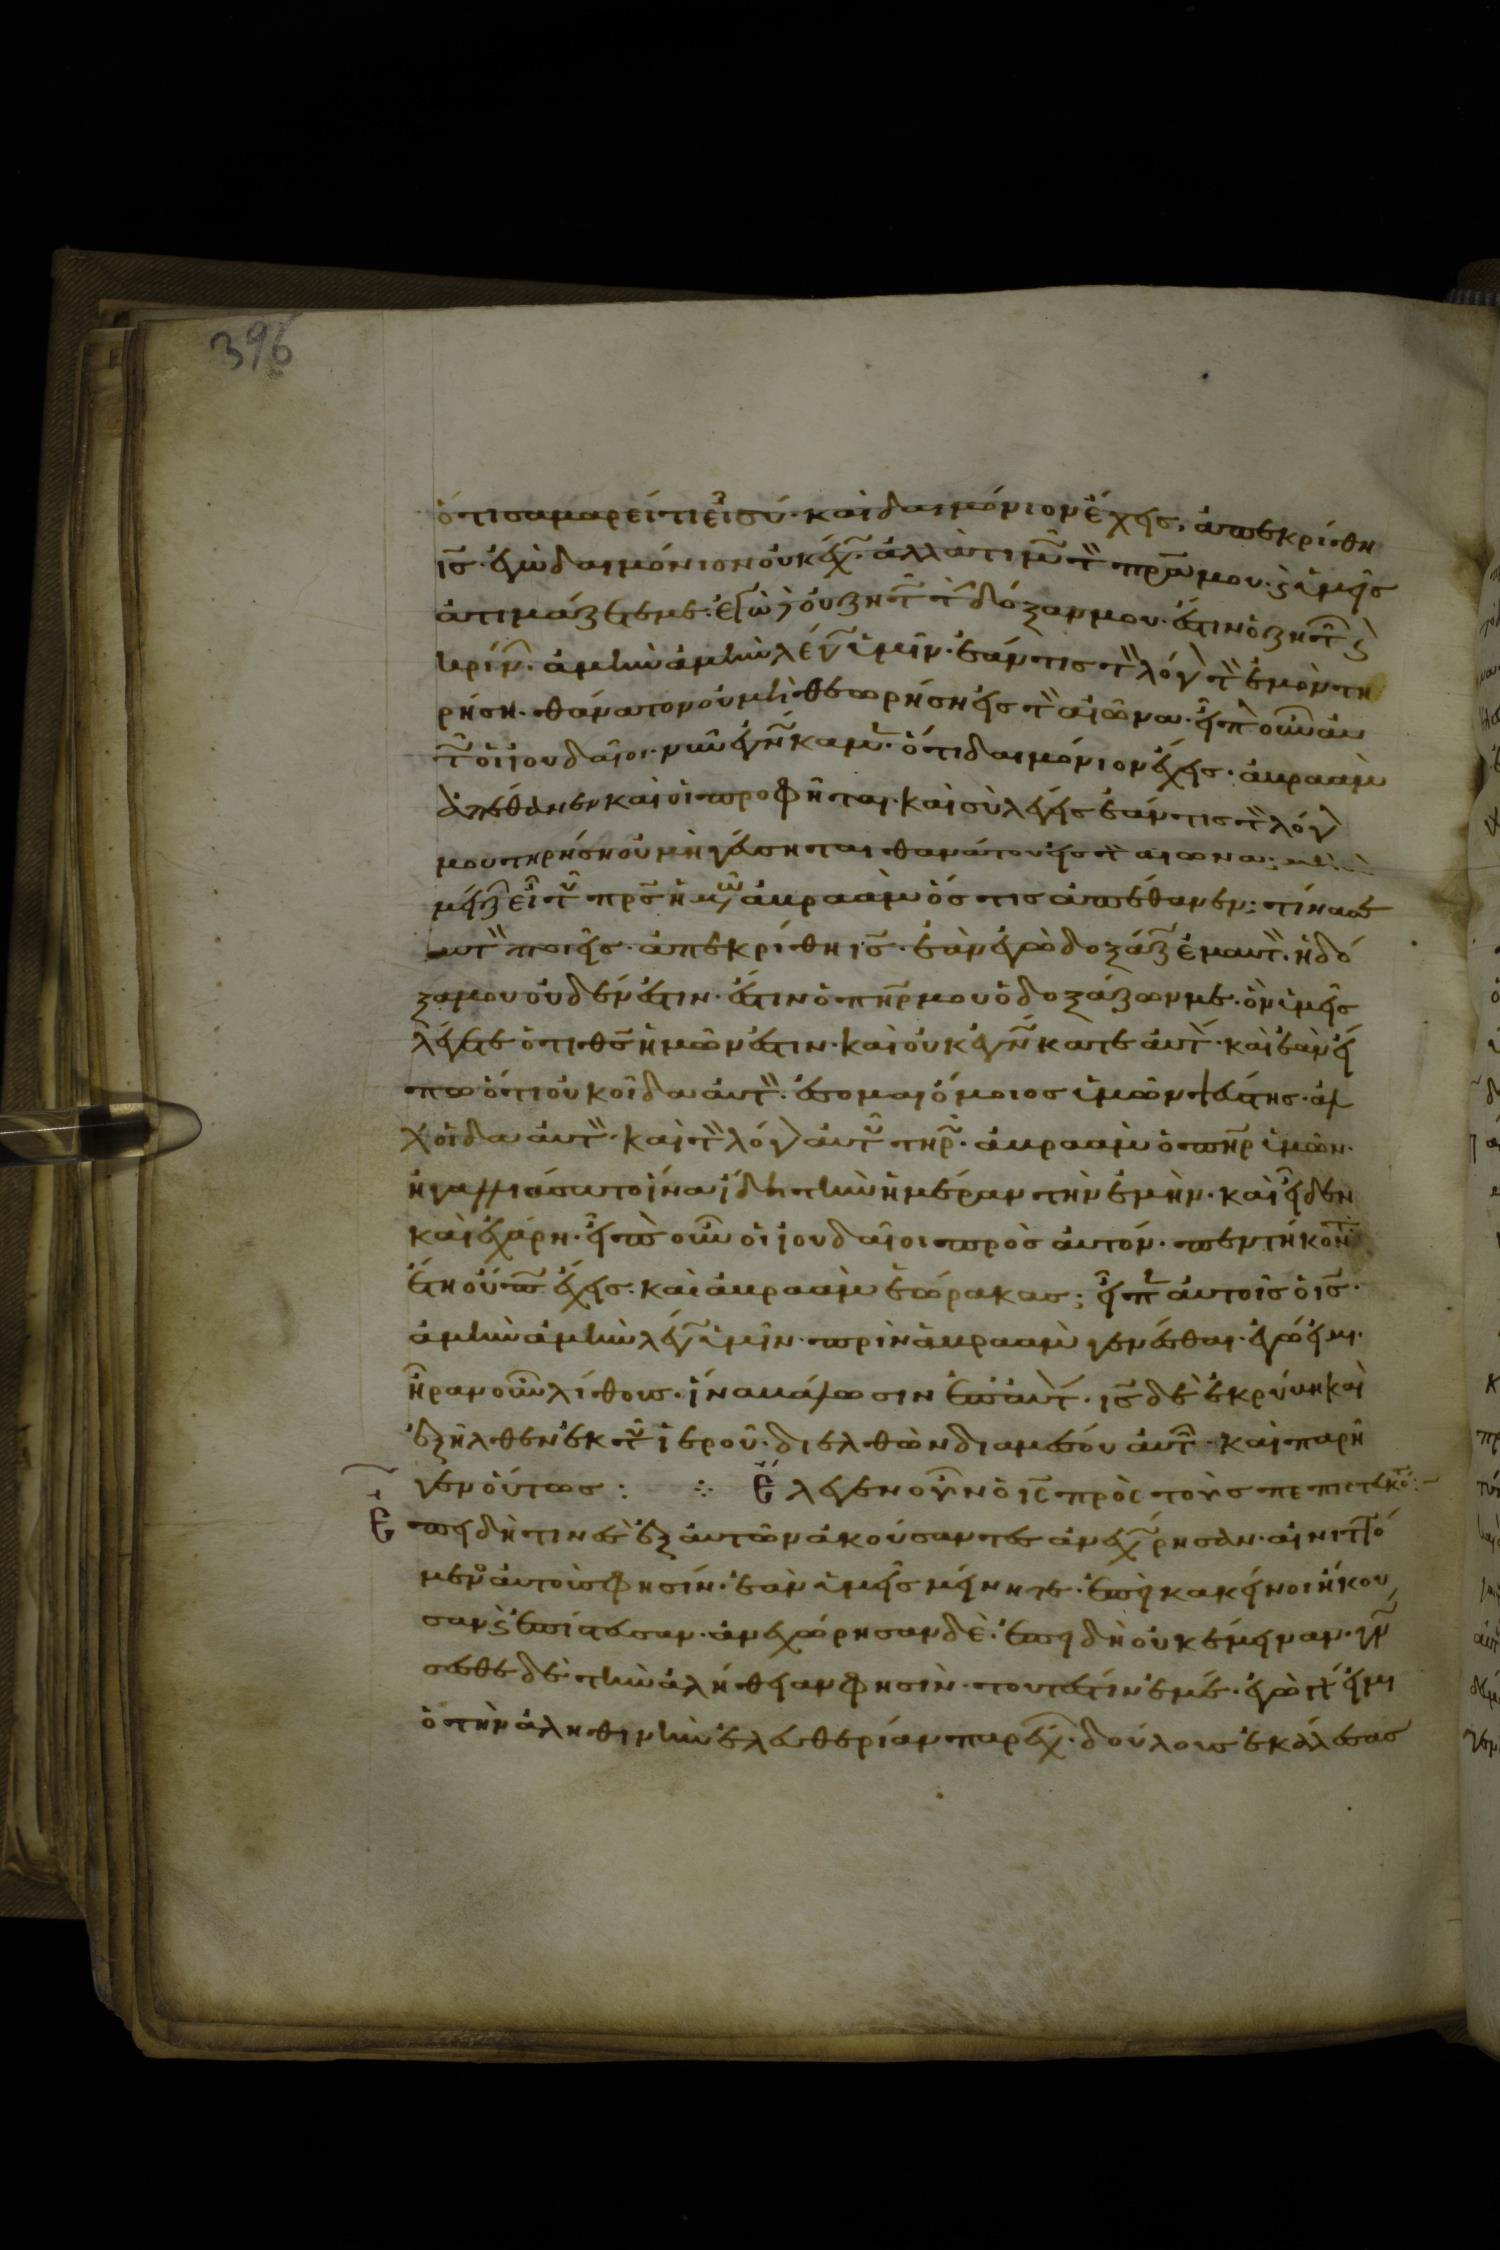 396
ὅτι σαμαρείτις εἶ σύ· καὶ δαιμόνιον ἔχεις· ἀπεκρίθη
ις· ἐγὼ δαιμόνιον οὐκ ἔχ· ἀλλὰ τιμῶ τὸν πρα μου· ϗ ὑμεῖς
ἀτιμάζετέ με· ἐγὼ δ οὐ ζητ τ δόξαν μου· ἔστιν ὁ ζητ ϗ
κρίν· ἀμὴν ἀμὴν λέγ ὑμῖν· ἐάν τις τὸν λόγ τὸν ἐμὸν τη
ρήση· θάνατον οὐ μὴ θεωρήση εἰς τὸν αἰῶνα· εἶπον οὖν αὐ
τ οἱ ἰουδαῖοι· νῦν ἐγνώκαμεν· ὅτι δαιμόνιον ἔχεις· ἀβραὰμ
ἀπέθανεν καὶ οἱ προφῆται· καὶ σὺ λέγεις ἐάν τις τὸν λόγ
μου τηρήση οὐ μὴ γεύσηται θανάτου εἰς τὸν αἰῶνα· μὴ σὺ
μείζ εἶ τοῦ πρς ἡμῶν ἀβραὰμ ὅστις ἀπέθανεν; τίνα σε
αυτὸν ποιεῖς· ἀπεκρίθη ις· ἐὰν ἐγὼ δοξάζ ἐμαυτὸν· ἡ δό
ξα μου οὐδέν ἐστιν· ἔστιν ὁ πηρ μου ὁ δοξάζων με· ὃν ὑμεῖς
λέγετε ὅτι θς ἡμῶν ἐστιν· καὶ οὐκ ἐγνώκατε αὐτ· καὶ ἐὰν εἴ
πω ὅτι οὐκ οἶδα αὐτὸν· ἔσομαι ὅμοιος ὑμῶν ψεύστης· ἀλ
λ οἶδα αὐτὸν· καὶ τὸν λόγ αὐτοῦ τηρ· ἀβραὰμ ὁ πηρ ὑμῶν·
ἠγαλλιάσατο ἵνα ἴδη τὴν ἡμέραν τὴν ἐμήν· καὶ εἶδεν
καὶ ἐχάρη· εἶπον οὖν οἱ ἰουδαῖοι πρὸς αὐτόν· πεντήκοντ
ἔτη οὔπω ἔχεις· καὶ ἀβραὰμ ἑώρακας; εἶπεν αὐτοῖς ὁ ις·
ἀμὴν ἀμὴν λέγ ὑμῖν· πρὶν ἀβραὰμ γενέσθαι· ἐγώ εἰμι·
ἦραν οὖν λίθους· ἵνα βάλωσιν ἐπ αὐτ· ις δὲ ἐκρύβη καὶ
ἐξῆλθεν ἐκ τοῦ ἱεροῦ· διελθὼν δια μέσου αὐτ· καὶ παρῆ
γεν οὕτως : ⁘ Ἔλεγεν οὖν ὁ ις πρὸς τοὺς πεπιστευκό
Ἐπειδή τινες ἐξ αὐτῶν ἀκούσαντες ἀνεχώρησαν· αἰνιττό
μενος αὐτοὺς φησίν· ἐὰν ὑμεῖς μείνητε· ἐπεὶ κακεῖνοι ἤκου
σαν ϗ ἐπίστευσαν· ἀνεχώρησαν δὲ· ἐπειδὴ οὐκ ἔμειναν· γνώ
σεσθε δὲ τὴν ἀλήθειαν φησὶν· τουτέστιν ἐμέ· ἐγὼ γάρ εἰμι
ὁ τὴν ἀληθινὴν ἐλευθερίαν παρέχ· δούλους ἐκάλεσας